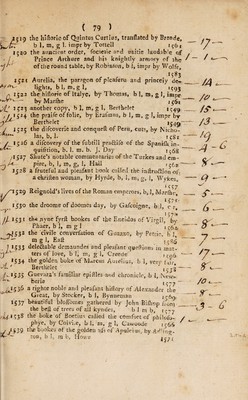 ( 79 )
1519 the historie of Quintus Curtius, translated by Brende,
b l, m, g l. impr by Tottell 1561 - 17 -
1520 the auncient order, societie and unitie laudable of
Prince Arthure and his knightly armory of the - 1 -
of the round table, by Robinson, b l, impr by Wolfe,
1583
1521 Aurelia, the paragon of pleasure and princely de-
lights, b l, m, g l, 1593 - 14 -
1522 the historie of Italye, by Thomas, b l, m, g l, impr
by Marshe 1561 - 10 -
1523 another copy, b l, m, g l, Berthelet 1549 - 15
1524 the praise of folie, by Erasmus, b l, m, g l, impr by
Berthelet 1549 - 13
1525 the discoverie and conquest of Peru, cutts, by Nicho-
las, b, l. 1581 - 19
1526 a discovery of the subtill practises of the Spanish in-
quisition, b. l. m. b. J. Day 1568 - 4 - 6
1527 Shute's notable commentaries of the Turkes and em-
pire, b, l, m, g, l, Hall 1562 - 8 -
1528 a fruteful and pleasant book called the instruction of
a christen woman, by Hyrde, b, l, m, g, l, Wykes,
1557 - 9 -
1529 Reignold's lives of the Roman emperors, b, l, Marshe,
1571 - 5 -
1530 the droome of doomes day, by Gascoigne, b l,
- 6 -
1531 the nyne fyrst bookes of the Eneidos of Virgil, by
Phaer, b l, m g l - 8
1532 the civile conversation of Guazzo, by Pettie, b l,
m g l, East 1586 - 7
1533 delectable demaundes and pleasant questions in mat-
ters of love, b l, m, g l, Creede 1596 - 17 -
1534 the golden boke of Marcus Aurelius, b l, very fair,
Berthelet 1538 - 8 -
1535 Guevara's familiar epistles and chronicle, b l, New-
berie 1577 - 10 -
1536 a righte noble and pleasant history of Alexander the
Great, by Stocker, b l, Bynneman 1569 - 8 -
1537 beautiful blossomes gathered by John Bishop from
the best of trees of all kyndes, b l m b, 1577 - 3 - 6
1538 the boke of Boetius called the comfort of philoso-
phye, by Colvile, b l, m, g l, Cawoode 1556 - 1 -
1539 the bookes of the golden ass of Apuleius, by Adling-
ton, b l, m b, How 1571